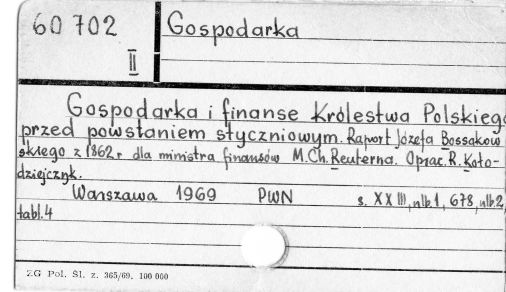 60 702
II
Gospodarka
Gospodarka i finanse Królestwa Polskiego
przed powstaniem styczniowym. Raport Józefa Bossakow
skiego z 1862 r. dla ministra finansów M.Ch. Reuterna. Oprac. R. Koło-
dziejczyk.
Warszawa 1969 PWN s. XXIII, nlb. 1, 678, nlb. 2,
tabl. 4
ZG Pol. Śl. z. 365/69. 100 000